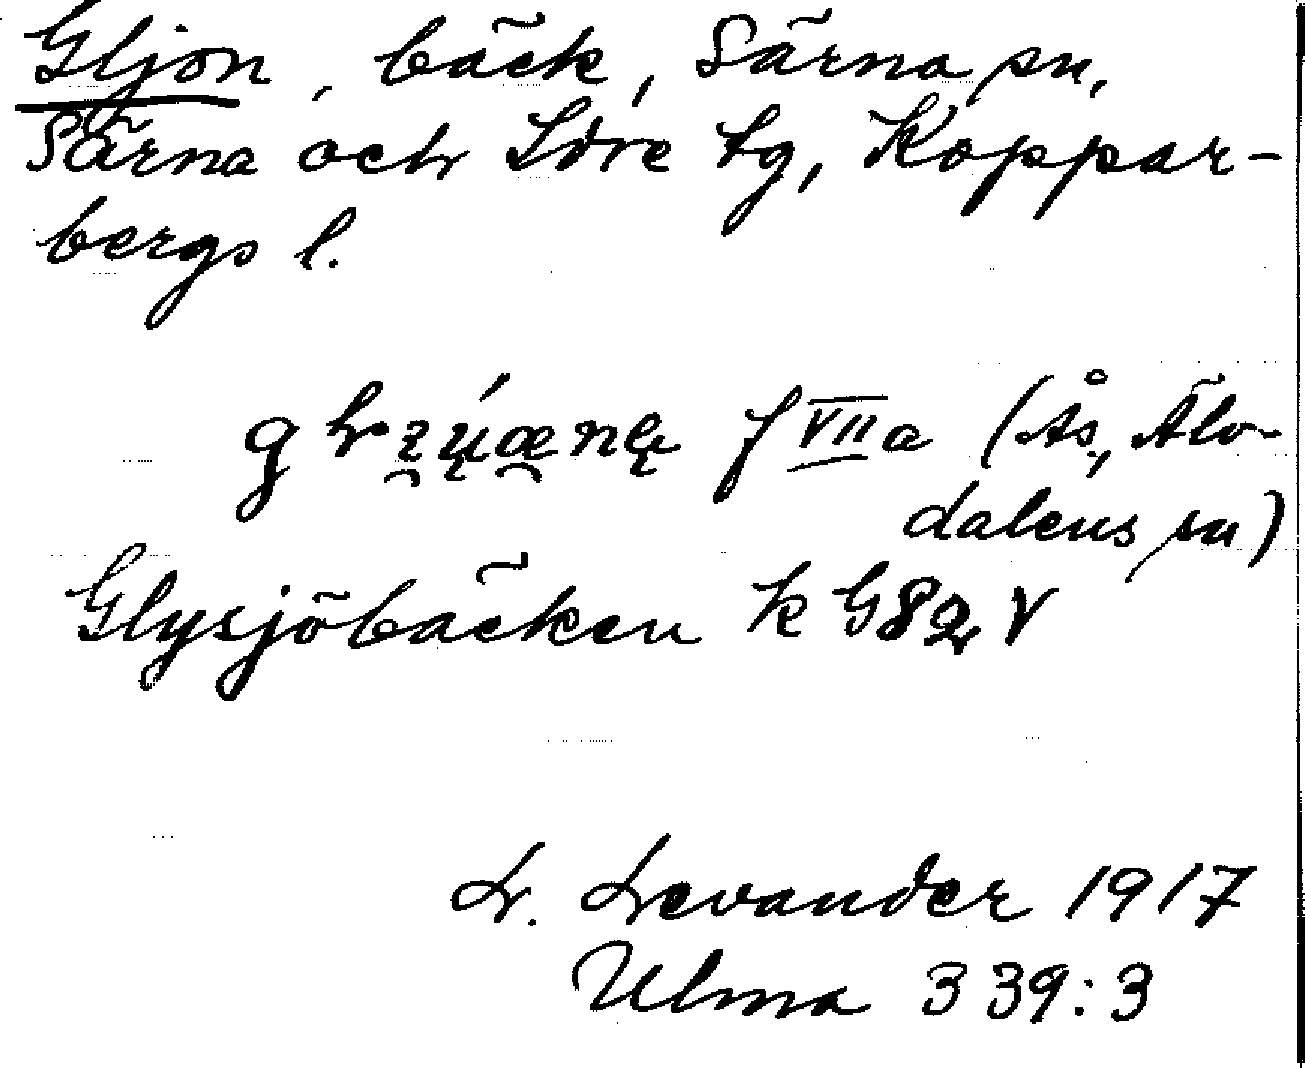 Gljön, bäck, Särna sn,
Särna och Idre tg, Koppar-
bergs l.
f VII a (Ås, Älv-
dalens sn)
Glysjöbäcken k G82 V
L. Levander 1917
Ulma 339:3